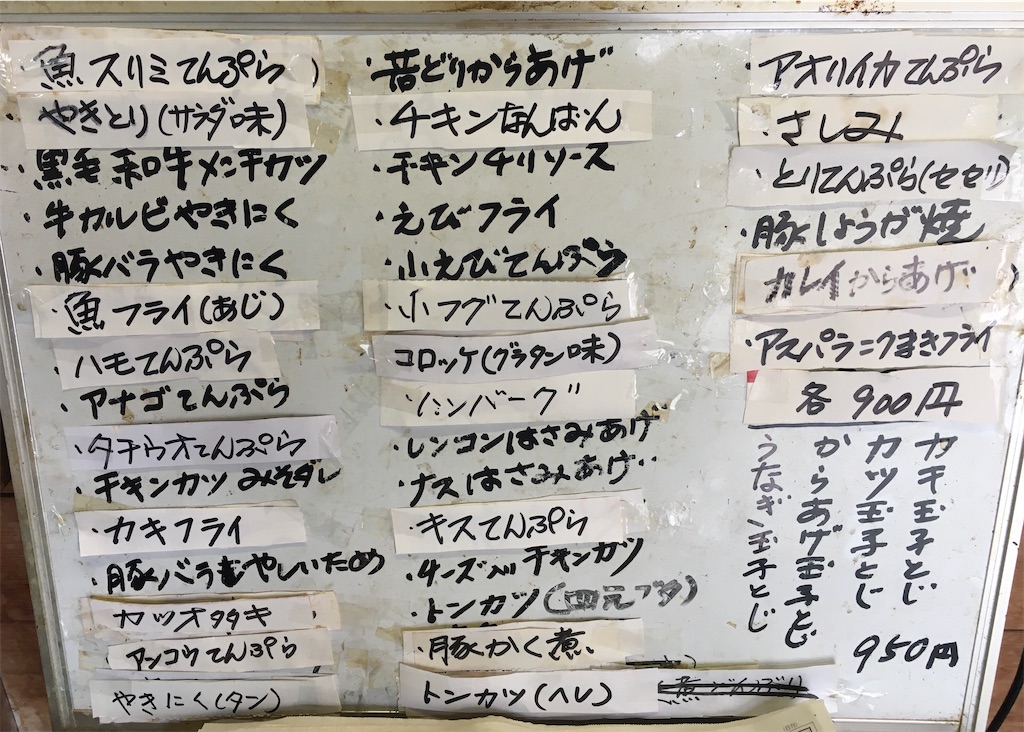 ・魚スリミてんぷら )
やきとり(サラダ味)
・黒毛和牛メンチカツ
・牛カルビやきにく
・豚バラやきにく
・魚フライ(あじ)
・ハモてんぷら
・アナゴてんぷら
・タチウオてんぷら
・チキンカツみそダレ
・カキフライ
・豚バラもやしいため
カツオタタキ
・アンコウてんぷら
やきにく(タン)
・若どりからあげ
・チキンなんばん
・チキンチリソース
・えびフライ
・小えびてんぷら
・小フグてんぷら
コロッケ(グラタン味)
・ハンバーグ
・レンコンはさみあげ
・ナスはさみあげ
・キスてんぷら
・チーズ入りチキンカツ
・トンカツ(四元ブタ)
・豚かく煮
トンカツ(ヘレ)
・アオリイカてんぷら
・さしみ
・とりてんぷら(セセリ)
・豚しょうが焼
カレイからあげ )
・アスパラニクまきフライ
各900円
カキ玉子とじ
カツ玉子とじ
からあげ玉子とじ
うなぎ玉子とじ
950円